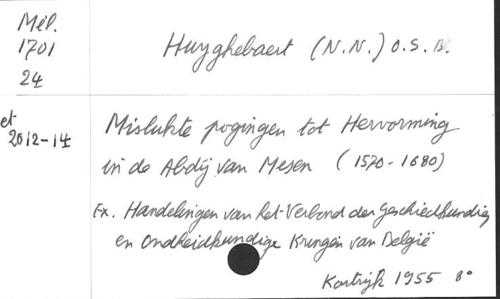 Mél.
1701
24
Huyghebaert (N.N.) O.S.B.
et
2012-14
Mislukte pogingen tot Hervorming
in de Abdij van Mesen (1570-1680)
Ex. Handelingen van het Verbond der Geschiedkundige
en Oudheidkundige Kringen van België
Kortrijk 1955 8°